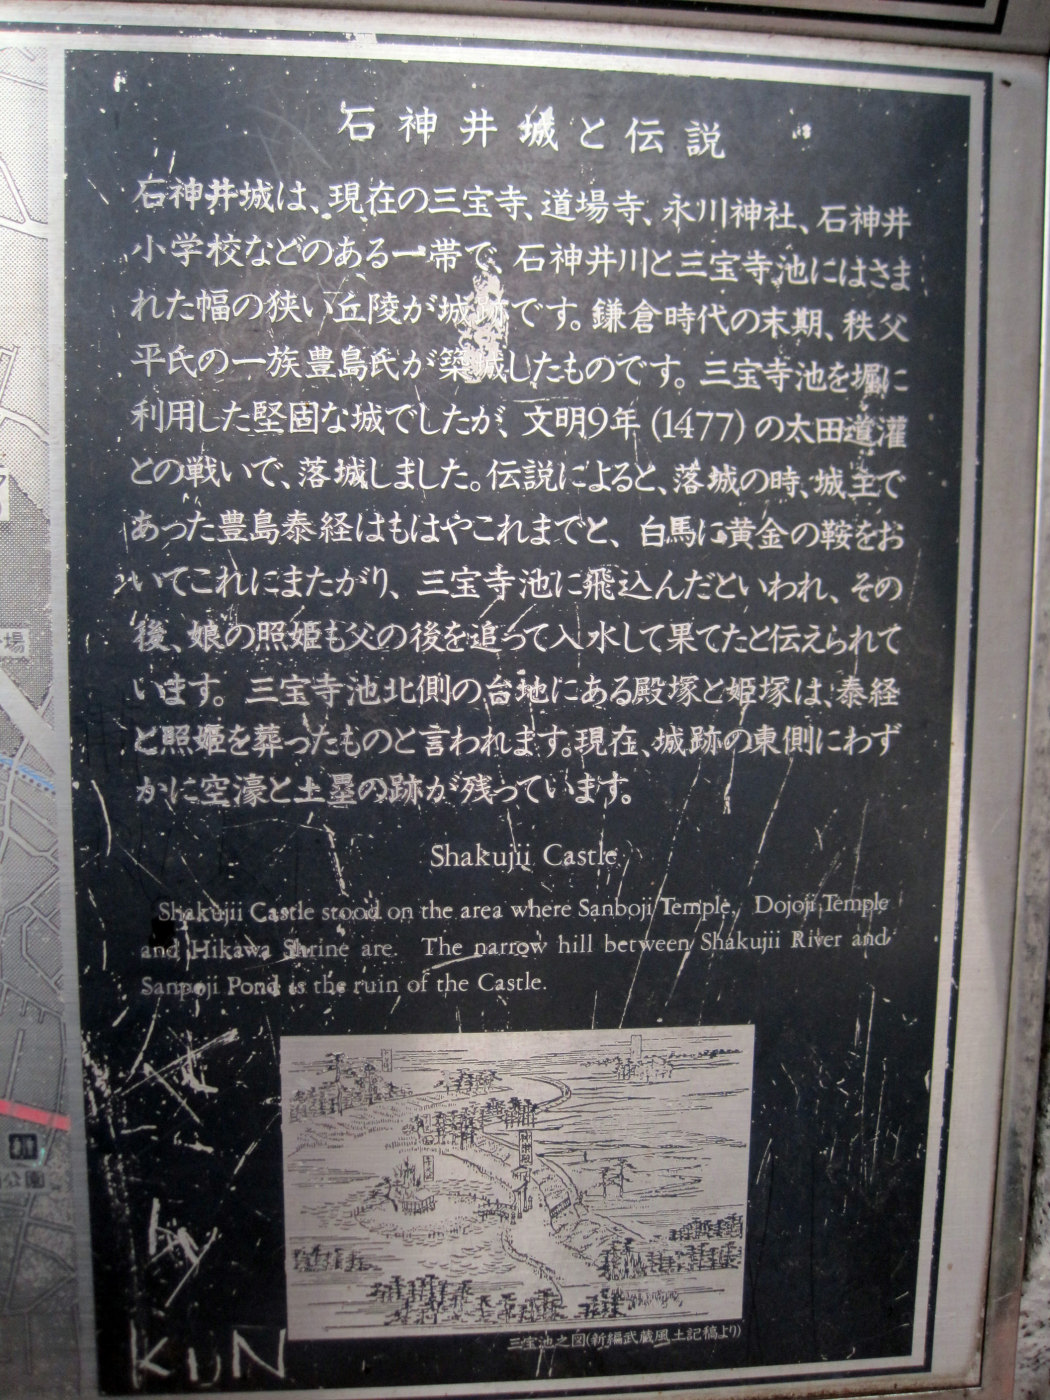 石神井城と伝説
石神井城は、現在の三宝寺、道場寺、氷川神社、石神井
小学校などのある一帯で、石神井川と三宝寺池にはさま
れた幅の狭い丘陵が城跡です。鎌倉時代の末期、秩父
平氏の一族豊島氏が築城したものです。三宝寺池を堀に
利用した堅固な城でしたが、文明9年(1477)の太田道灌
との戦いで、落城しました。伝説によると、落城の時、城主で
あった豊島泰経はもはやこれまでと、白馬に黄金の鞍をお
いてこれにまたがり、三宝寺池に飛込んだといわれ、その
後、娘の照姫も父の後を追って入水して果てたと伝えられて
います。三宝寺池北側の台地にある殿塚と姫塚は、泰経
と照姫を葬ったものと言われます。現在、城跡の東側にわず
かに空濠と土塁の跡が残っています。
Shakujii Castle
Shakujii Castle stood on the area where Sanboji Temple, Dojoji Temple
and Hikawa Shrine are. The narrow hill between Shakujii River and
Sanpoji Pond is the ruin of the Castle.
三宝池之図(新編武蔵風土記稿より)
KUN